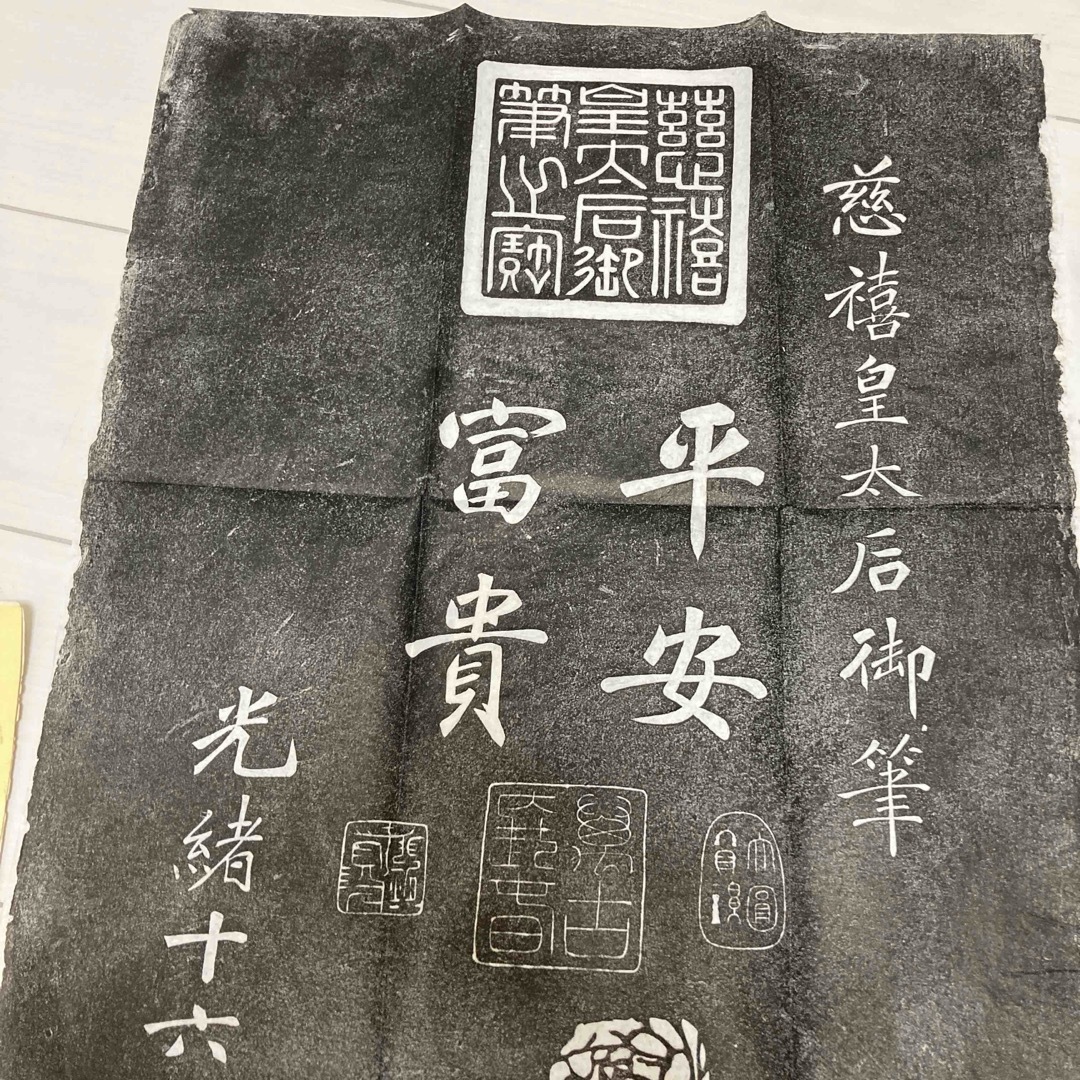 慈禧皇太后御筆
慈禧
皇太后御
筆之寶
平安
富貴
光緒十六